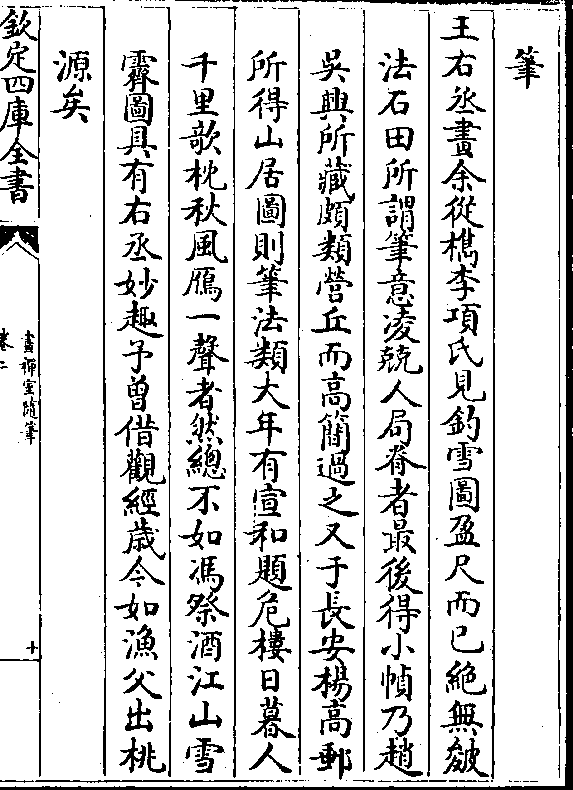 筆
王右丞畫余從檇李項氏見釣雪圖盈尺而已絕無皴
法石田所謂筆意凌競人局脊者最後得小幀乃趙
吳興所藏頗類營丘而高簡過之又于長安楊高郵
所得山居圖則筆法類大年有宣和題危樓日暮人
千里欹枕秋風鴈一聲者然總不如馮祭酒江山雪
霽圖具有右丞妙趣予曾借觀經歲今如漁父出桃
源矣
欽定四庫全書
畫禪室隨筆
卷二
十